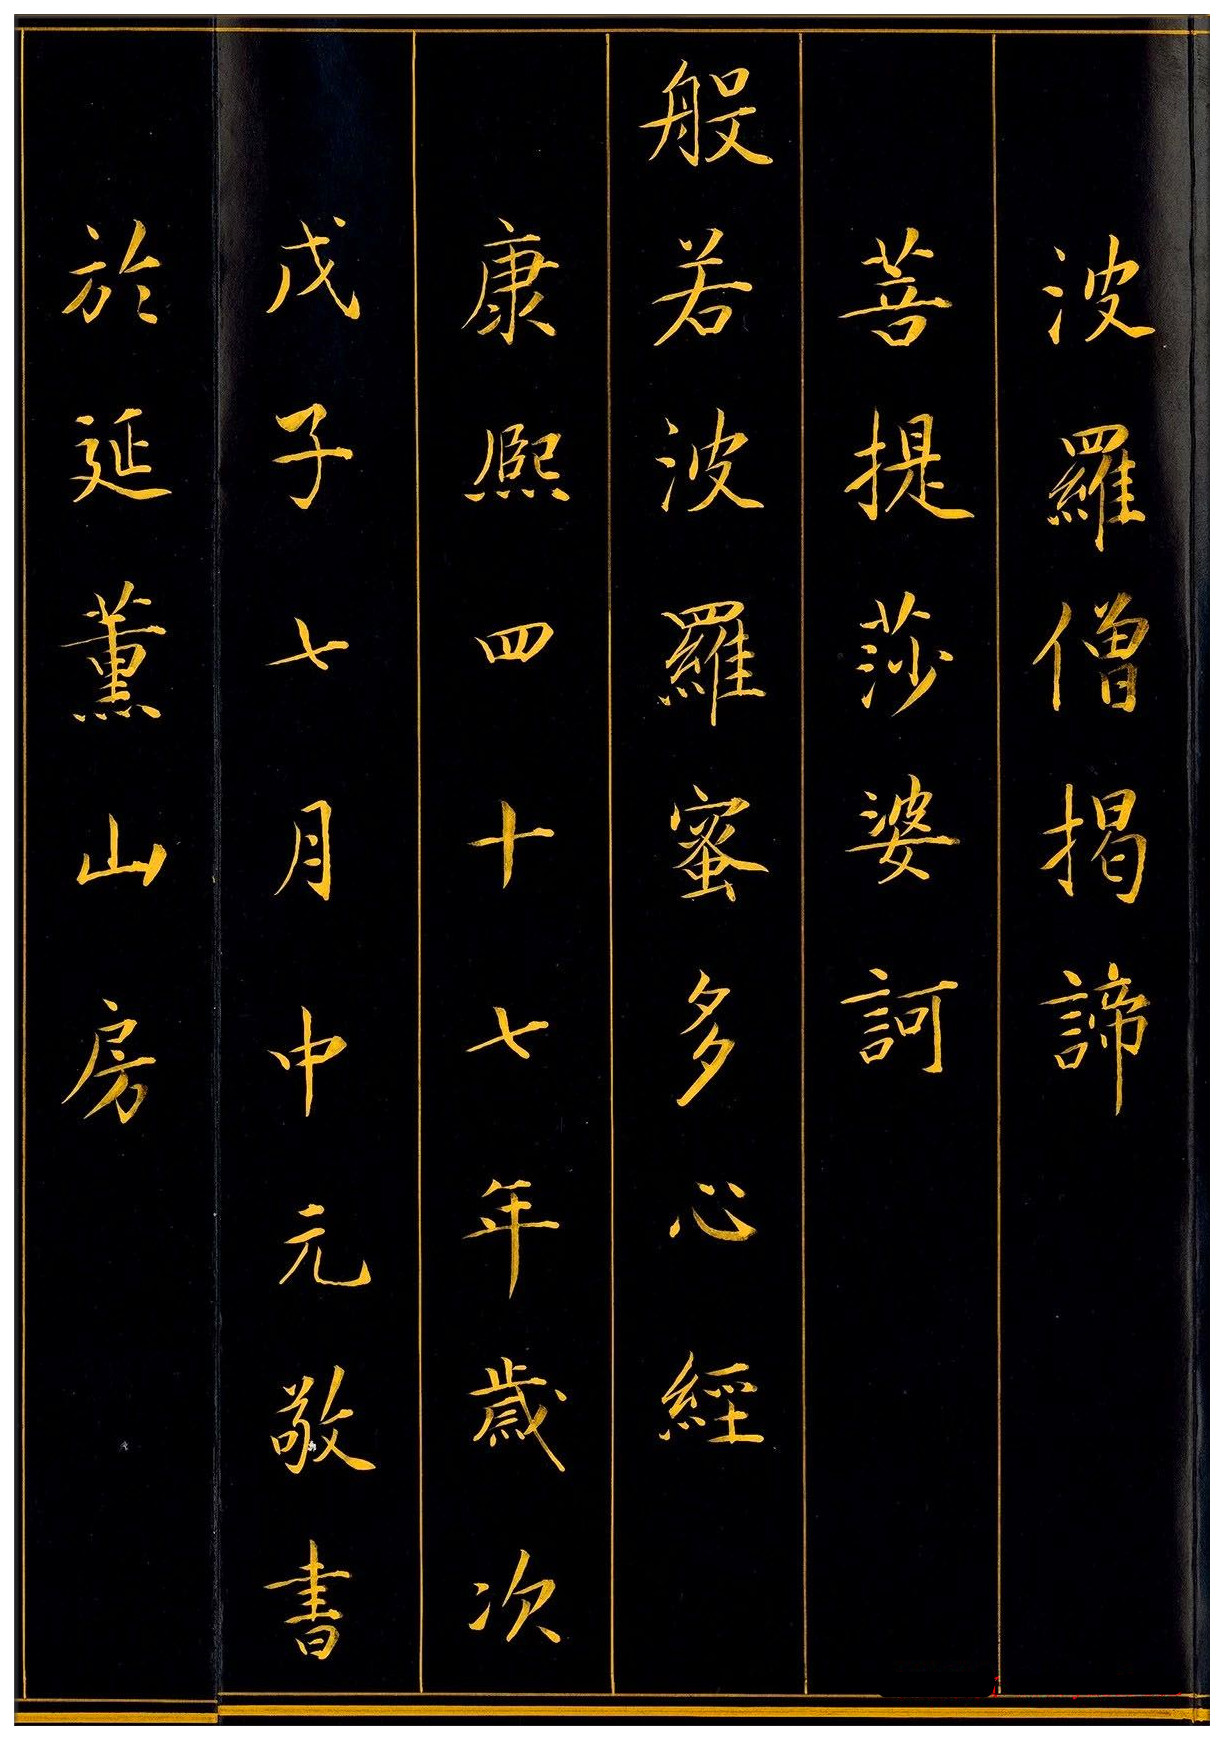 波羅僧揭諦
菩提莎婆訶
般若波羅蜜多心經
康熙四十七年歲次
戊子七月中元敬書
於延薰山房